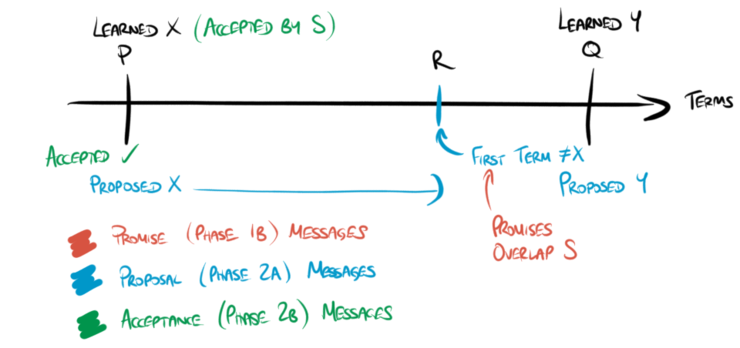 LEARNED X (ACCEPTED BY S)
P
LEARNED Y
Q
R
TERMS
ACCEPTED ✓
PROPOSED X
FIRST TERM ≠X
PROPOSED Y
PROMISES
OVERLAP S
PROMISE (PHASE 1B) MESSAGES
PROPOSAL (PHASE 2A) MESSAGES
ACCEPTANCE (PHASE 2B) MESSAGES